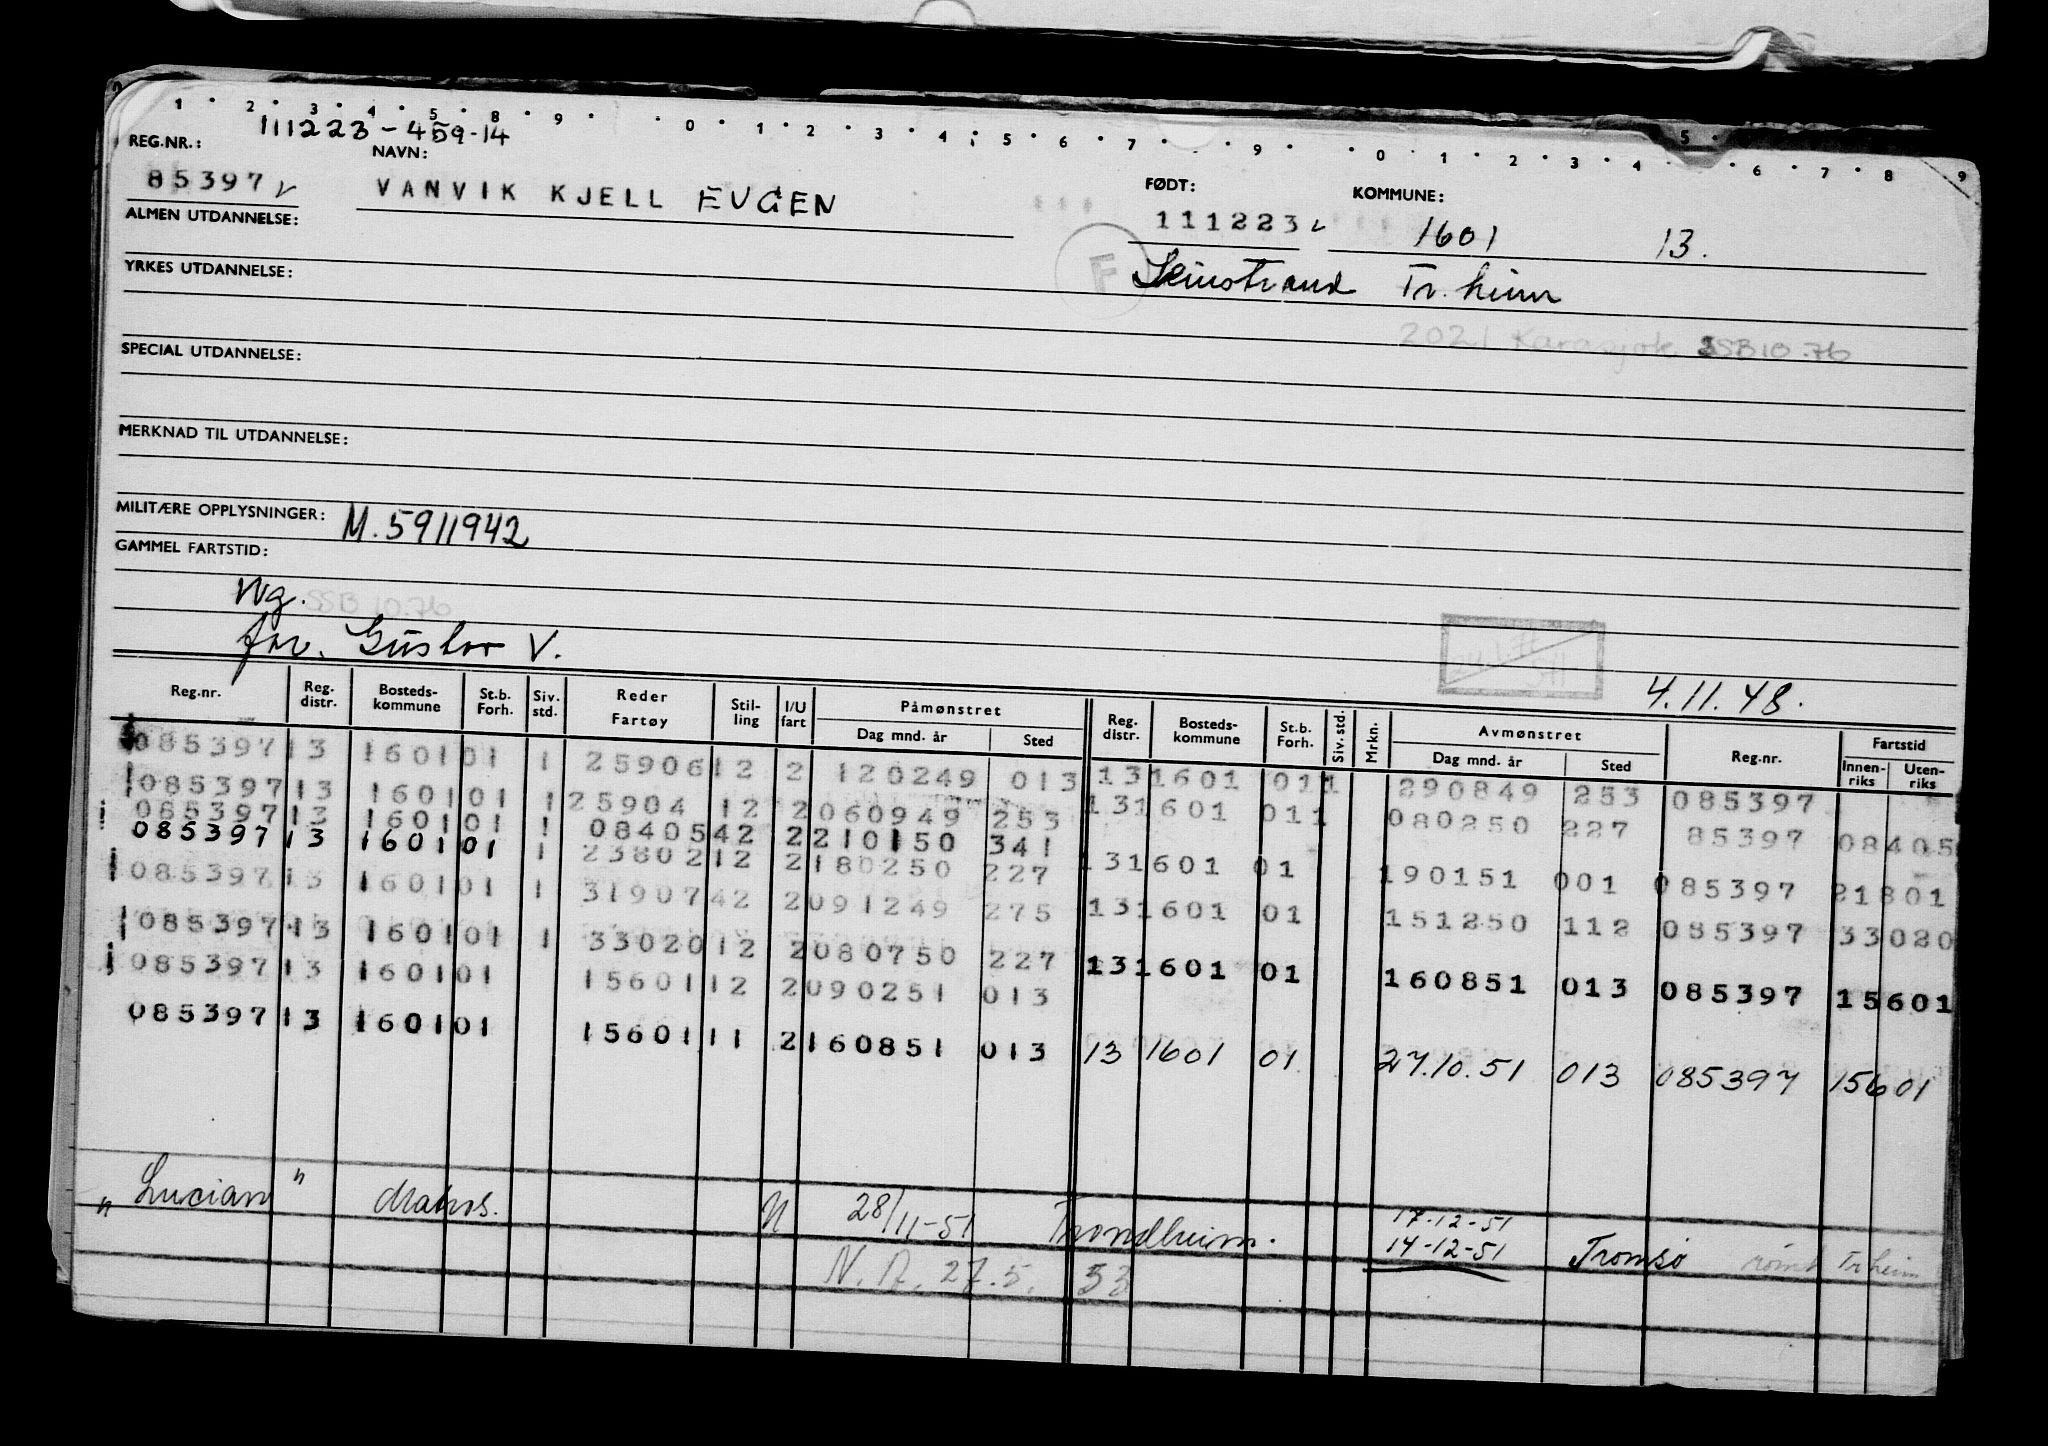 1 2 3 4 5 8 9 0 1 2 3 4 5 6 7 9 0 1 2 3 4 5 6 7 8 9
111223-459-14
REG.NR.: NAVN: FØDT: KOMMUNE:
85397 VANVIK KJELL EUGEN 111223 1601 13.
ALMEN UTDANNELSE:
F Leinstrand Tr.heim
YRKES UTDANNELSE:
2021 Karasjok SSB 10.76
SPECIAL UTDANNELSE:
MERKNAD TIL UTDANNELSE:
MILITÆRE OPPLYSNINGER: M.5911942
GAMMEL FARTSTID:
Ng. SSB 10.76
far. Gustav V.
4.11.48.
Reg.nr. Reg. distr. Bosteds-kommune St.b. Forh. Siv. std. Reder Fartøy Stil-ling I/U fart Påmønstret Dag mnd. år Sted Reg. distr. Bosteds-kommune St.b. Forh. Siv. std. Mrkn. Avmønstret Dag mnd. år Sted Reg.nr. Fartstid Innen-riks Uten-riks
085397 13 1601 01 1 25906 12 2 120249 013 13 1601 01 1 290849 253 085397
085397 13 1601 01 1 25904 12 2 060949 253 13 1601 01 1 080250 227 85397 08405
085397 13 1601 01 1 08405 42 2 210150 341
085397 13 1601 01 1 23802 12 2 180250 227 13 1601 01 190151 001 085397 21801
085397 13 1601 01 1 31907 42 2 091249 275 13 1601 01 151250 112 085397 33020
085397 13 1601 01 1 33020 12 2 080750 227 13 1601 01 160851 013 085397 15601
085397 13 1601 01 15601 12 2 090251 013
085397 13 1601 01 15601 11 2 160851 013 13 1601 01 27.10.51 013 085397 15601
" Lucian " Matros. N 28/11-51 Trondheim. 17-12-51
14-12-51 Tromsø rømt Trheim
N.A. 27.5. 53